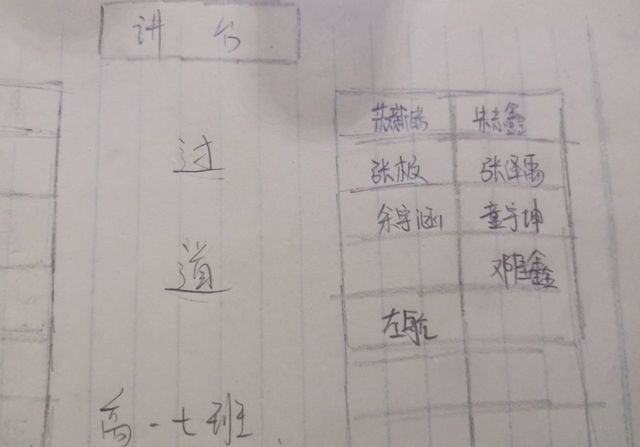 讲台
苏新皓 朱志鑫
过
张极 张泽禹
余宇涵 童宇坤
道
邓佳鑫
左航
高一七班